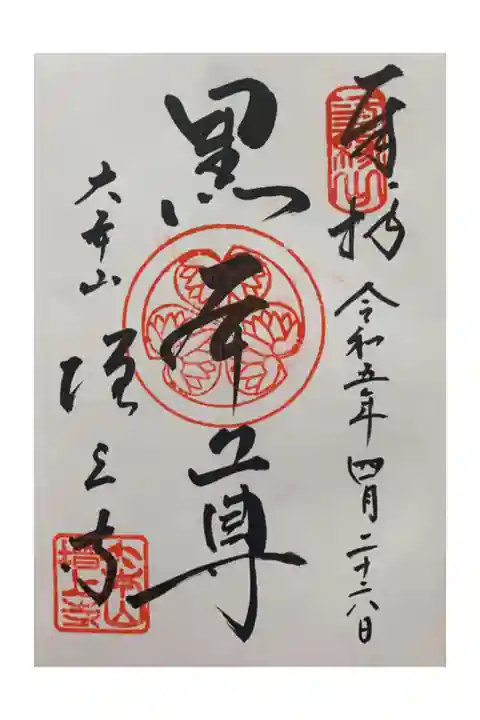 奉拝 令和五年四月二十六日
三縁山
黒本尊
大本山 増上寺
大本山
増上寺